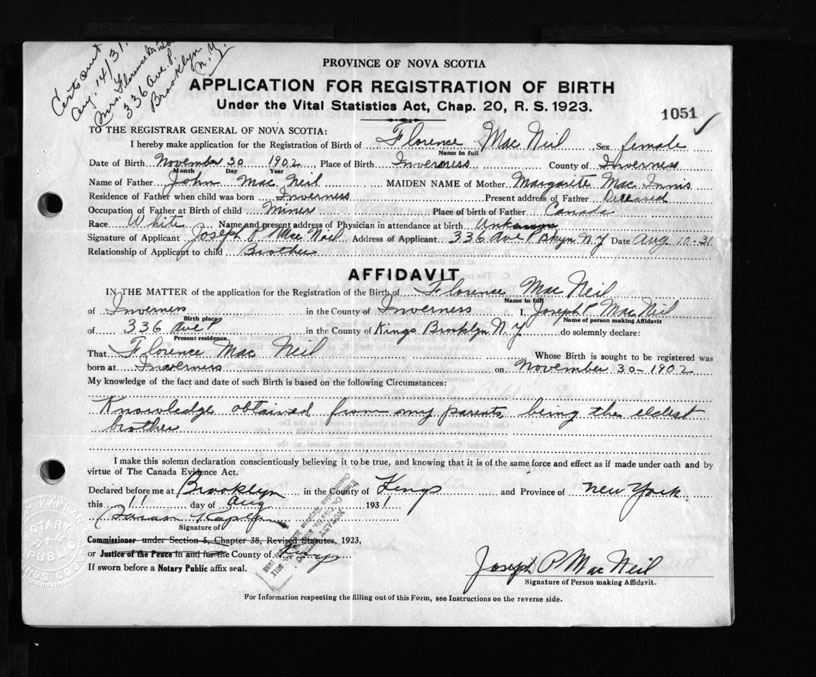 Cert sent
Aug. 14/31.
Mrs. Florence
336 Ave. P.
Brooklyn
N.Y.
PROVINCE OF NOVA SCOTIA
APPLICATION FOR REGISTRATION OF BIRTH
Under the Vital Statistics Act, Chap. 20, R. S. 1923.
1051 ✓
TO THE REGISTRAR GENERAL OF NOVA SCOTIA:
I hereby make application for the Registration of Birth of Florence Mac Neil Sex female
Name in full
Date of Birth November 30 1902 Place of Birth Inverness County of Inverness
Month Day Year
Name of Father John Mac Neil MAIDEN NAME of Mother Margarite Mac Innis
Residence of Father when child was born Inverness Present address of Father Deceased
Occupation of Father at Birth of child Miner Place of birth of Father Canada
Race White Name and present address of Physician in attendance at birth Unknown
Signature of Applicant Joseph P Mac Neil Address of Applicant 336 Ave P Bkyn N.Y Date Aug 10-31
Relationship of Applicant to child Brother
AFFIDAVIT
IN THE MATTER of the application for the Registration of the Birth of Florence Mac Neil
Name in full
of Inverness in the County of Inverness I, Joseph P Mac Neil
Birth place Name of person making Affidavit
of 336 Ave P in the County of Kings Brooklyn N.Y do solemnly declare:
Present residence
That Florence Mac Neil Whose Birth is sought to be registered was
born at Inverness on November 30-1902
My knowledge of the fact and date of such Birth is based on the following Circumstances:
Knowledge obtained from my parents being the eldest
brother
I make this solemn declaration conscientiously believing it to be true, and knowing that it is of the same force and effect as if made under oath and by
virtue of The Canada Evidence Act.
Declared before me at Brooklyn in the County of Kings and Province of New York
this 11 day of Aug 1931
Signature of
Commissioner under Section 5, Chapter 38, Revised Statutes, 1923,
or Justice of the Peace in and for the County of Kings
If sworn before a Notary Public affix seal.
Joseph P Mac Neil
Signature of Person making Affidavit.
For Information respecting the filling out of this Form, see Instructions on the reverse side.
NOTARY
PUBLIC